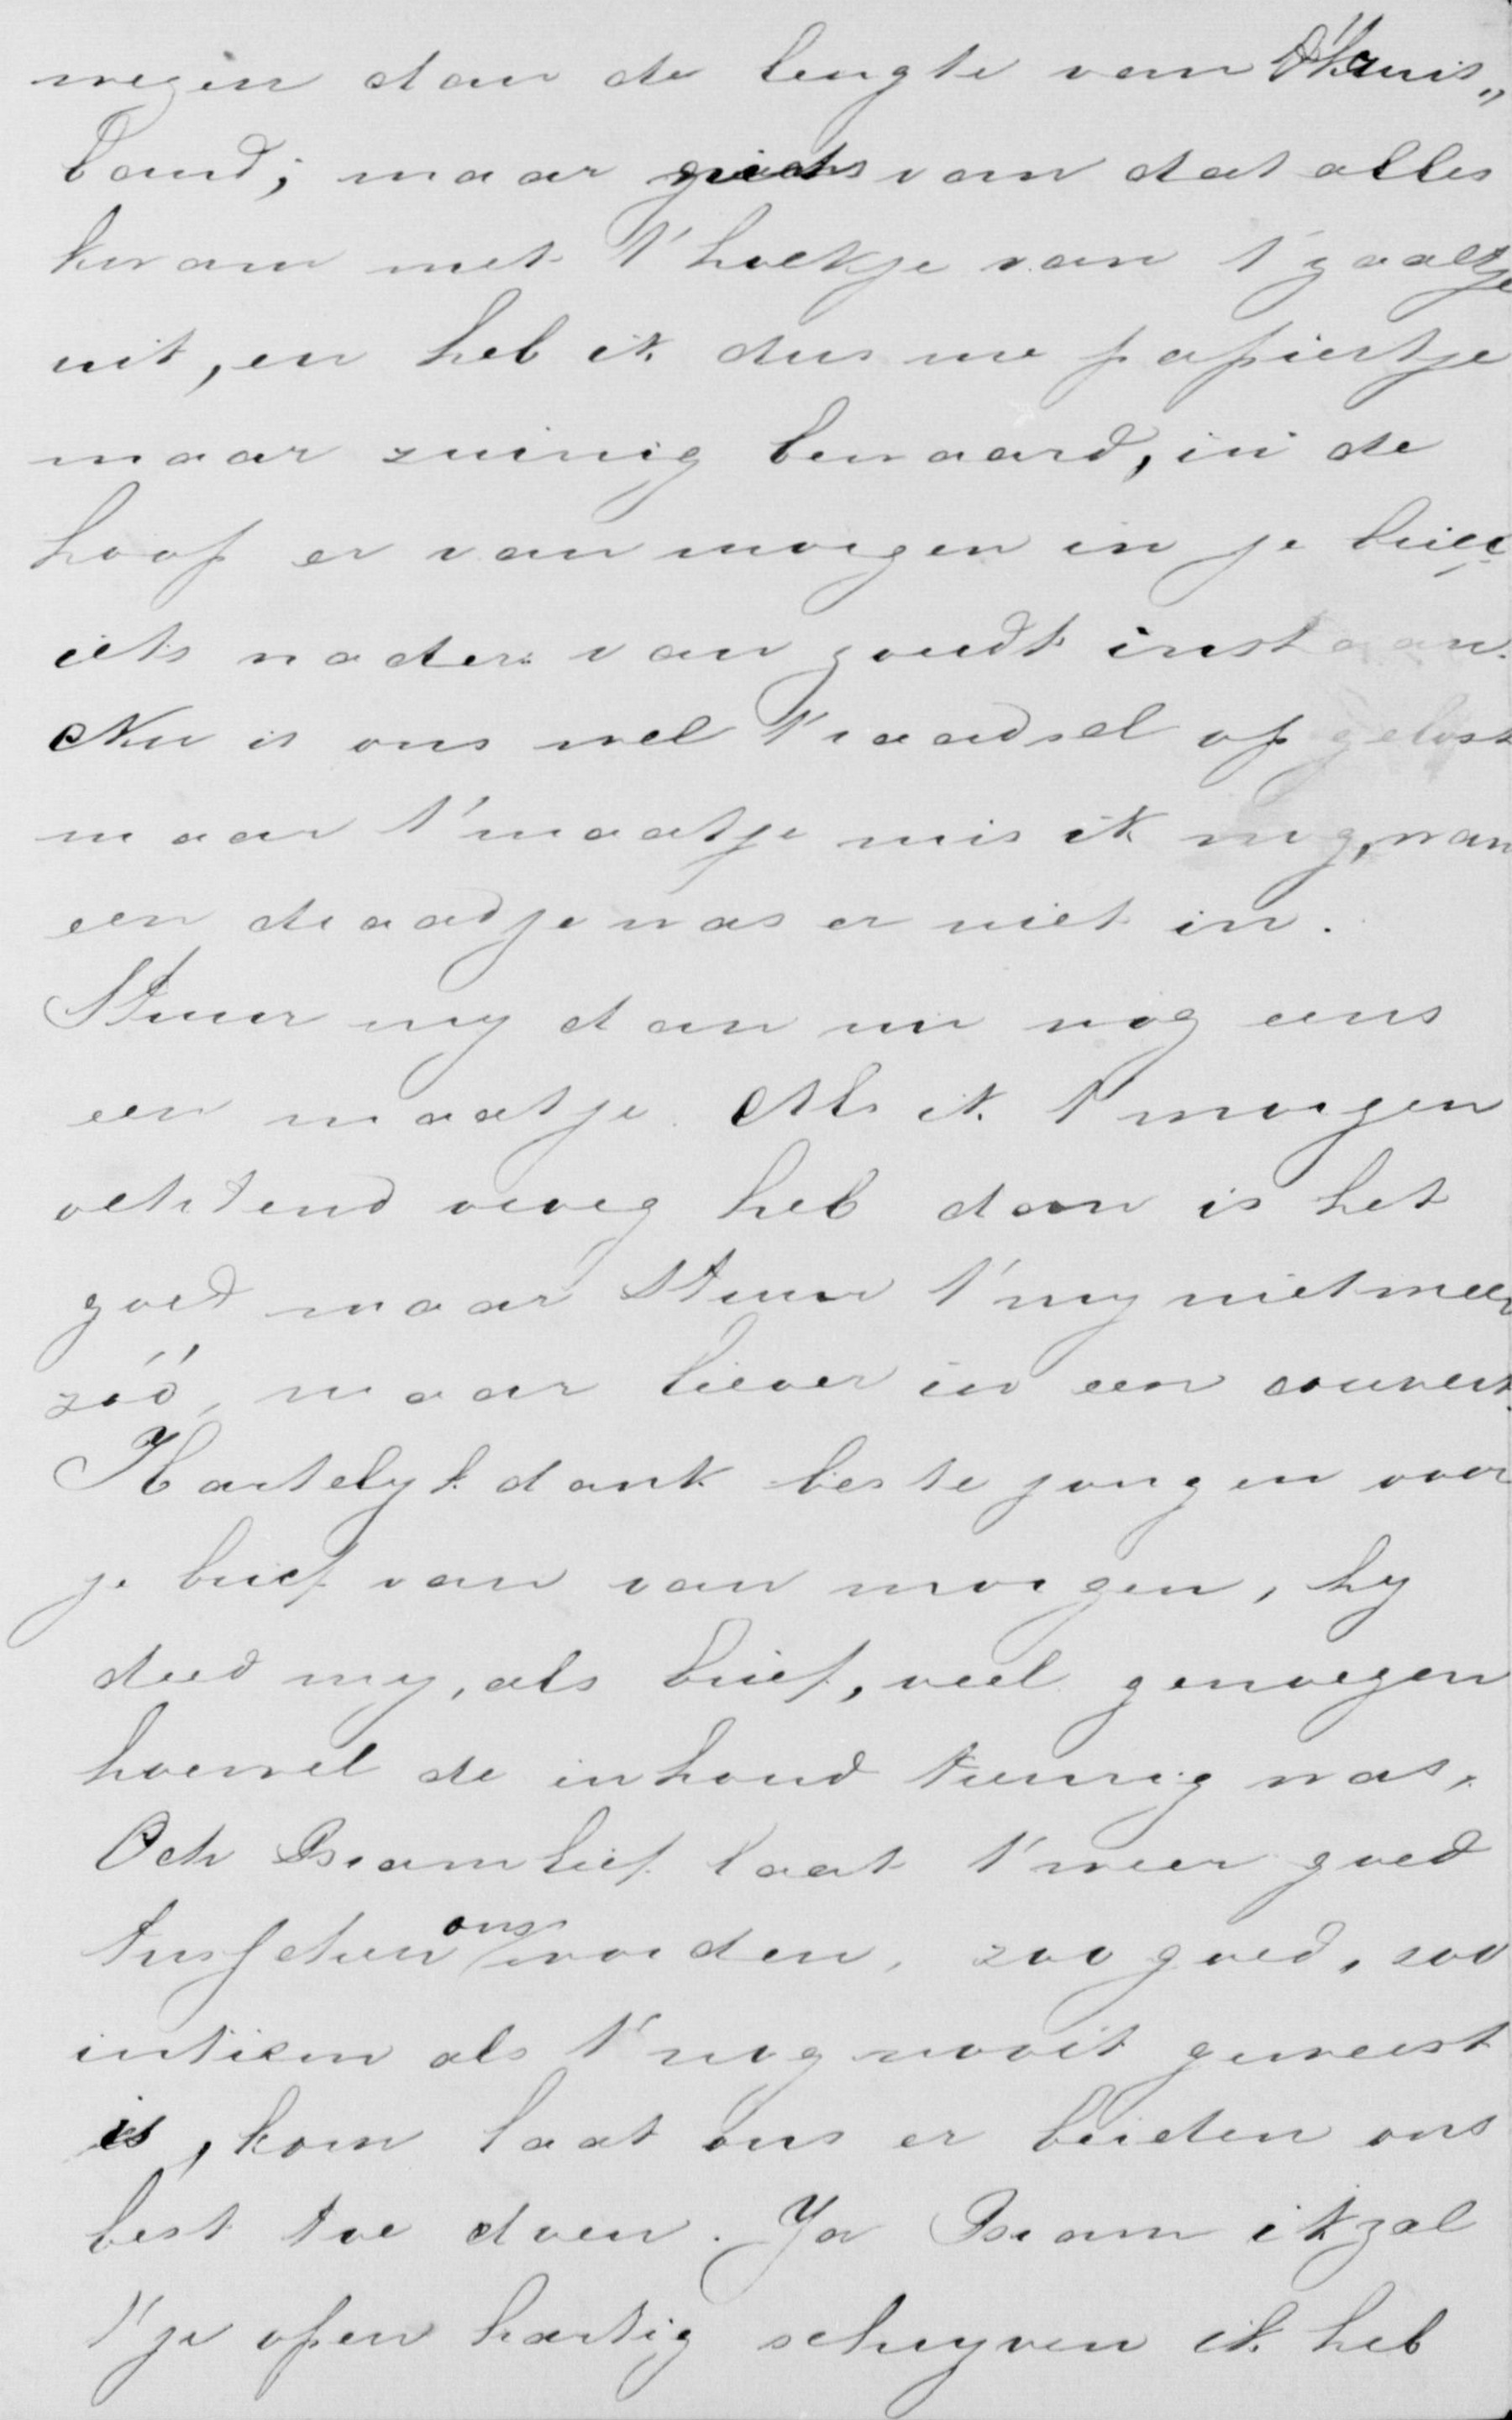 wegen dan de lengte van 't kruis„
band; maar niets van dat alles
kwam met t' hoekje van t' gaatje
uit, en heb ik dus me papiertje
maar zuinig bewaard, in de
hoop er van morgen in je brief
iets nader van zoudt instaan.
Nu is ons wel t' raadsel op gelost
maar t' maatje mis ik nog, wan
een draadje was er niet in.
Stuur my dan nu nog eens
een maatje. Als ik t' morgen
ochtend vroeg heb dan is het
goed maar stuur t' my niet meer
zóó, maar liever in een couvert.
Hartelyk dank beste jongen voor
je brief van van morgen, hy
deed my, als brief, veel genoegen
hoewel de inhoud treurig was,
Och Bram lief laat t' weer goed
tusschen ons worden, zoo goed, zoo
intiem als t' nog nooit geweest
is, kom laat ons er beiden ons
best toe doen. Ja Bram ik zal
t' je open hartig schryven ik heb